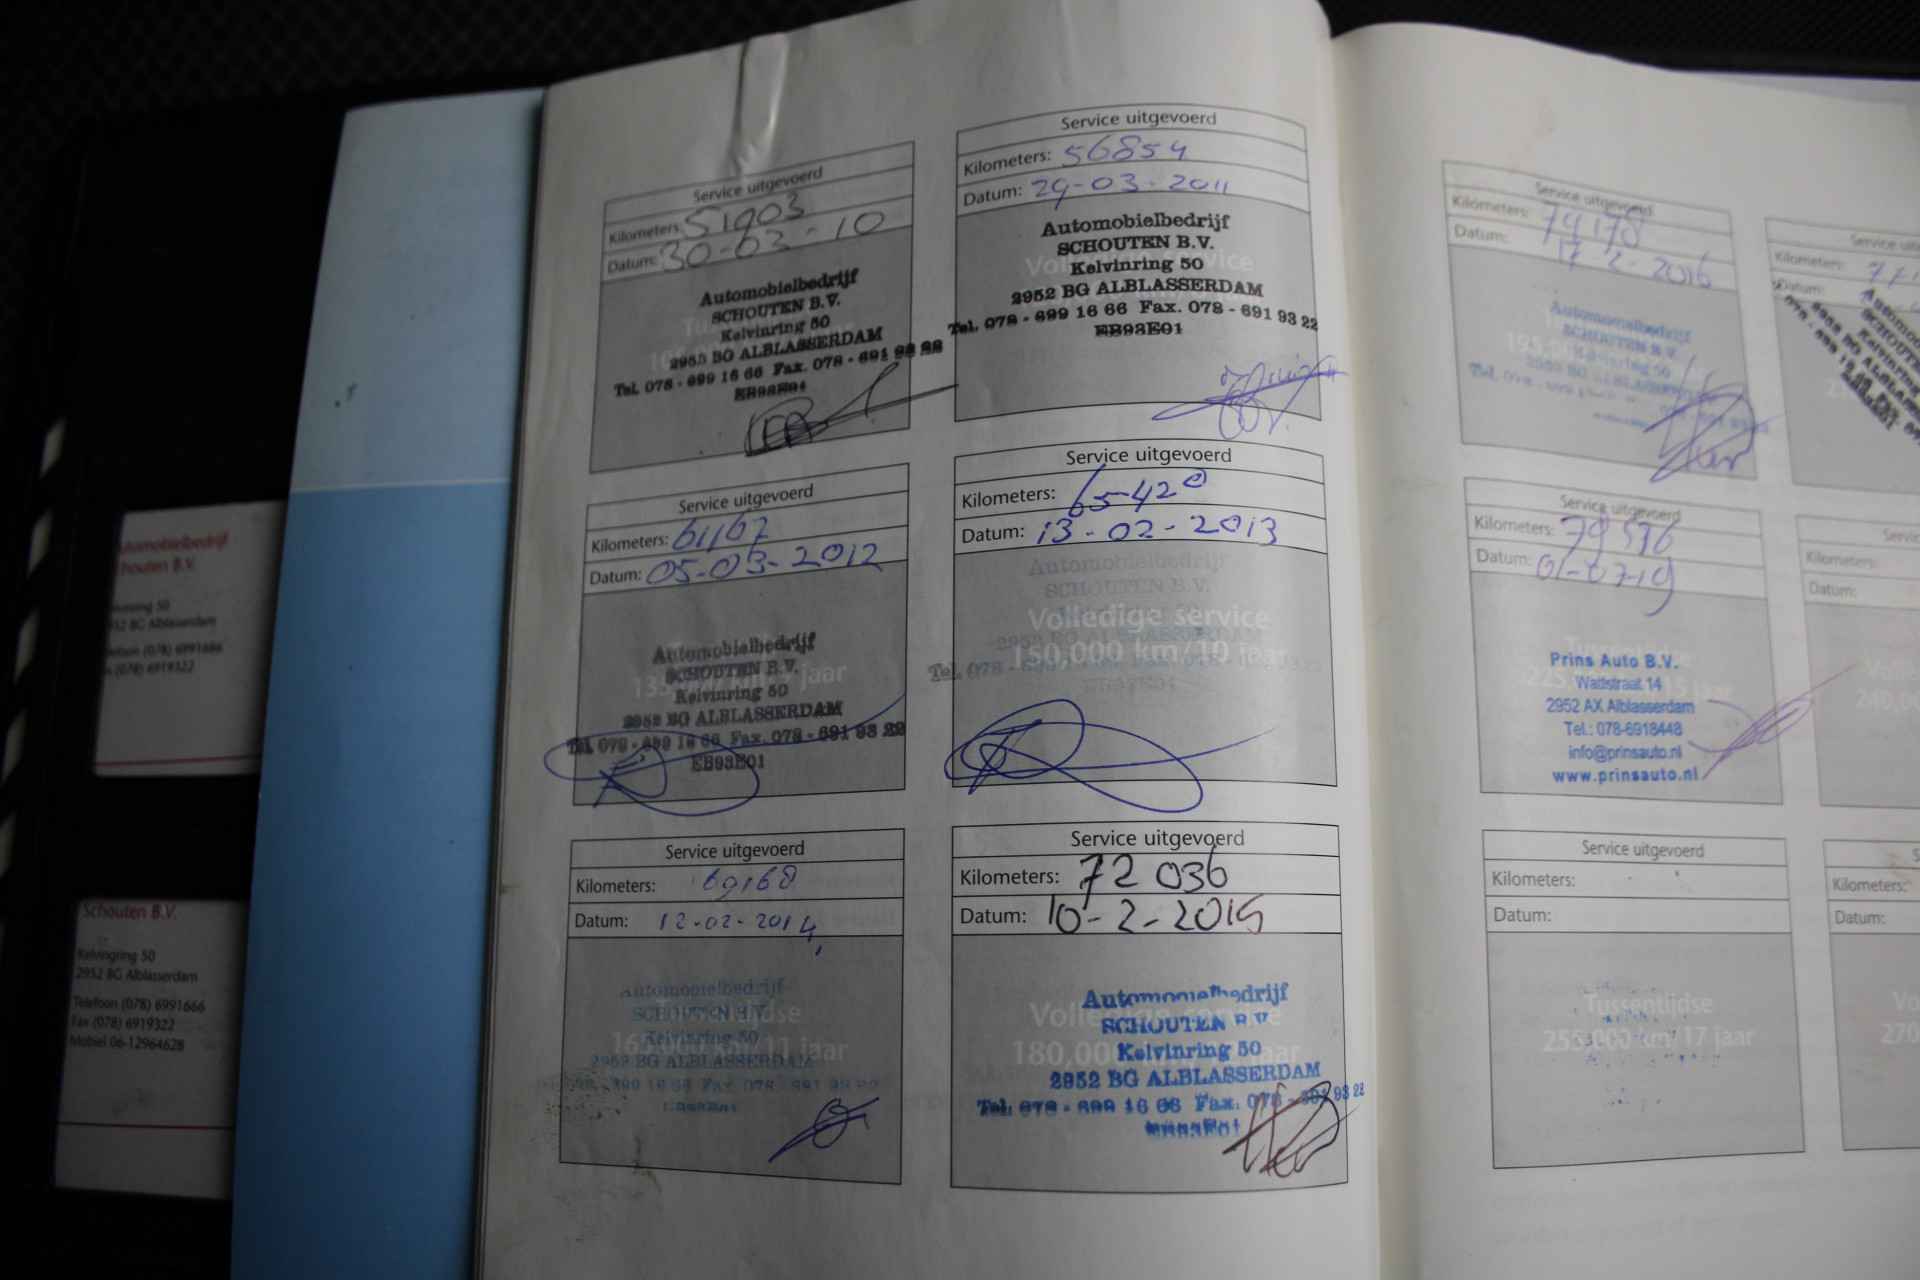 Service uitgevoerd
Kilometers: 51903
Datum: 30-03-10
Automobielbedrijf
SCHOUTEN B.V.
Kelvinring 50
2952 BG ALBLASSERDAM
Tel. 078 - 699 16 66 Fax. 078 - 691 93 22
EB93E01
Service uitgevoerd
Kilometers: 56854
Datum: 29-03-2011
Automobielbedrijf
SCHOUTEN B.V.
Volledige service
Kelvinring 50
2952 BG ALBLASSERDAM
Tel. 078 - 699 16 66 Fax. 078 - 691 93 22
EB93E01
Service uitgevoerd
Kilometers: 61167
Datum: 05-03-2012
Automobielbedrijf
SCHOUTEN B.V.
jaar
Kelvinring 50
2952 BG ALBLASSERDAM
Tel. 078 - 699 16 66 Fax. 078 - 691 93 22
EB93E01
Service uitgevoerd
Kilometers: 65420
Datum: 13-02-2013
Automobielbedrijf
SCHOUTEN B.V.
Volledige service
2952 BG ALBLASSERDAM
150,000 km/10 jaar
Tel. 078
Service uitgevoerd
Kilometers: 69168
Datum: 12-02-2014
Automobielbedrijf
SCHOUTEN B.V.
Kelvinring 50
11 jaar
2952 BG ALBLASSERDAM
Service uitgevoerd
Kilometers: 72 036
Datum: 10-2-2015
Automobielbedrijf
Volledige service
SCHOUTEN B.V.
Kelvinring 50
180,000 jaar
2952 BG ALBLASSERDAM
Tel. 078 - 699 16 66 Fax. 078 - 691 93 22
Service uitgevoerd
Kilometers: 74178
Datum: 17-2-2016
Automobielbedrijf
SCHOUTEN B.V.
Kelvinring 50
Kilometers:
Datum:
Service uitgevoerd
Kilometers: 79536
Datum: 01-07-19
Tussentijdse
Prins Auto B.V.
225,000 15 jaar
Wattstraat 14
2952 AX Alblasserdam
Tel.: 078-6918448
info@prinsauto.nl
www.prinsauto.nl
Kilometers:
Datum:
Service uitgevoerd
Kilometers:
Datum:
Tussentijdse
255,000 km/17 jaar
Kilometers:
Datum:
Automobielbedrijf
Schouten B.V.
Kelvinring 50
2952 BG Alblasserdam
Telefoon (078) 6991666
Fax (078) 6919322
Schouten B.V.
Kelvingring 50
2952 BG Alblasserdam
Telefoon (078) 6991666
Fax (078) 6919322
Mobiel 06-12964628